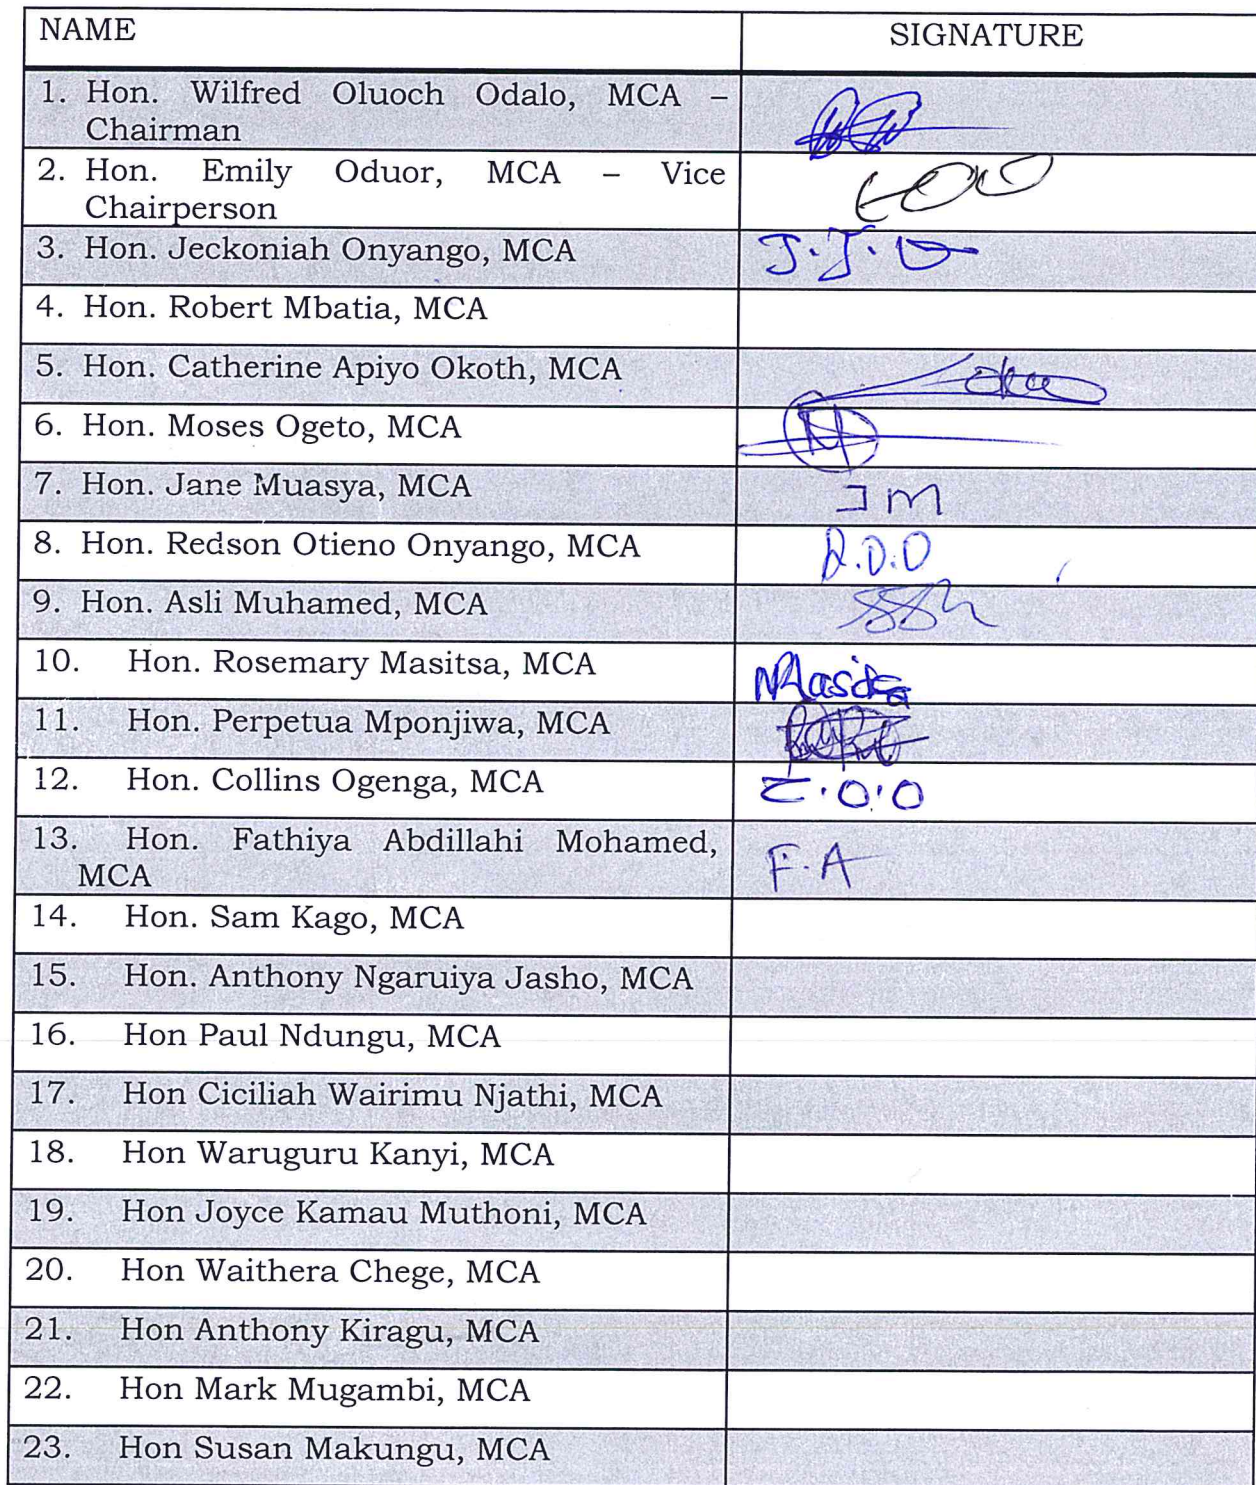 NAME SIGNATURE
1. Hon. Wilfred Oluoch Odalo, MCA –
Chairman
2. Hon. Emily Oduor, MCA – Vice
Chairperson
3. Hon. Jeckoniah Onyango, MCA J.J.O
4. Hon. Robert Mbatia, MCA
5. Hon. Catherine Apiyo Okoth, MCA
6. Hon. Moses Ogeto, MCA
7. Hon. Jane Muasya, MCA J M
8. Hon. Redson Otieno Onyango, MCA R.O.O
9. Hon. Asli Muhamed, MCA
10. Hon. Rosemary Masitsa, MCA
11. Hon. Perpetua Mponjiwa, MCA
12. Hon. Collins Ogenga, MCA C.O.O
13. Hon. Fathiya Abdillahi Mohamed,
MCA F.A
14. Hon. Sam Kago, MCA
15. Hon. Anthony Ngaruiya Jasho, MCA
16. Hon Paul Ndungu, MCA
17. Hon Ciciliah Wairimu Njathi, MCA
18. Hon Waruguru Kanyi, MCA
19. Hon Joyce Kamau Muthoni, MCA
20. Hon Waithera Chege, MCA
21. Hon Anthony Kiragu, MCA
22. Hon Mark Mugambi, MCA
23. Hon Susan Makungu, MCA